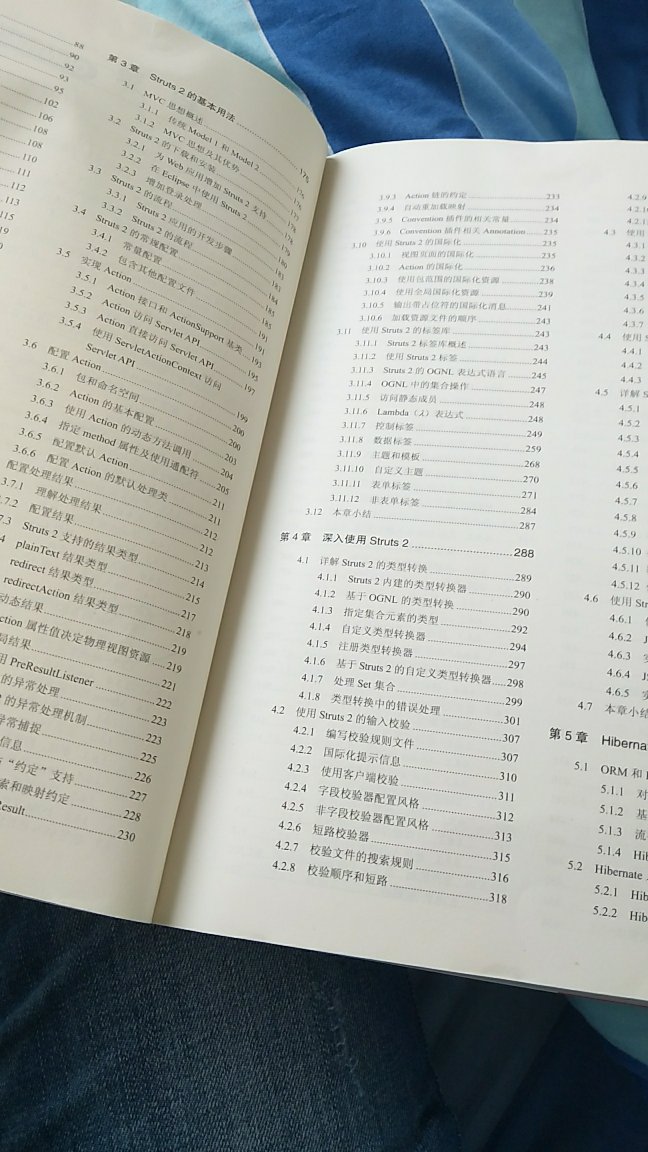 88
90
92
93
95
102
106
108
108
110
111
112
113
115
119
第3章 Struts 2的基本用法
3.1 MVC 思想概述
3.1.1 传统 Model 1 和 Model 2
3.1.2 MVC 思想及其优势
3.2 Struts 2 的下载和安装
3.2.1 为 Web 应用增加 Struts 2 支持
3.2.2 在 Eclipse 中使用 Struts 2
3.2.3 增加登录处理
3.3 Struts 2 的流程
3.3.1 Struts 2 应用的开发步骤
3.3.2 Struts 2 的流程
3.4 Struts 2 的常规配置
3.4.1 常量配置
3.4.2 包含其他配置文件
3.5 实现 Action
3.5.1 Action 接口和 ActionSupport 基类
3.5.2 Action 访问 Servlet API
3.5.3 Action 直接访问 Servlet API
3.5.4 使用 ServletActionContext 访问
Servlet API 197
3.6 配置 Action 199
3.6.1 包和命名空间 200
3.6.2 Action 的基本配置 200
3.6.3 使用 Action 的动态方法调用 203
3.6.4 指定 method 属性及使用通配符 204
3.6.5 配置默认 Action 205
3.6.6 配置 Action 的默认处理类 211
配置处理结果 211
3.7.1 理解处理结果 212
3.7.2 配置结果 212
7.3 Struts 2 支持的结果类型 213
4 plainText 结果类型 214
redirect 结果类型 215
redirectAction 结果类型 217
动态结果 218
ction 属性值决定物理视图资源 219
局结果 219
用 PreResultListener 221
的异常处理 222
的异常处理机制 223
异常捕捉 223
信息 225
“约定”支持 226
索和映射约定 227
228
Result 230
3.9.3 Action 链的约定 233
3.9.4 自动重加载映射 234
3.9.5 Convention 插件的相关常量 234
3.9.6 Convention 插件相关 Annotation 235
3.10 使用 Struts 2 的国际化 235
3.10.1 视图页面的国际化 235
3.10.2 Action 的国际化 236
3.10.3 使用包范围的国际化资源 238
3.10.4 使用全局国际化资源 239
3.10.5 输出带占位符的国际化消息 241
3.10.6 加载资源文件的顺序 243
3.11 使用 Struts 2 的标签库 243
3.11.1 Struts 2 标签库概述 243
3.11.2 使用 Struts 2 标签 244
3.11.3 Struts 2 的 OGNL 表达式语言 245
3.11.4 OGNL 中的集合操作 247
3.11.5 访问静态成员 248
3.11.6 Lambda(λ)表达式 248
3.11.7 控制标签 249
3.11.8 数据标签 259
3.11.9 主题和模板 268
3.11.10 自定义主题 270
3.11.11 表单标签 271
3.11.12 非表单标签 284
3.12 本章小结 287
第4章 深入使用 Struts 2 288
4.1 详解 Struts 2 的类型转换 289
4.1.1 Struts 2 内建的类型转换器 290
4.1.2 基于 OGNL 的类型转换 290
4.1.3 指定集合元素的类型 292
4.1.4 自定义类型转换器 294
4.1.5 注册类型转换器 297
4.1.6 基于 Struts 2 的自定义类型转换器 298
4.1.7 处理 Set 集合 299
4.1.8 类型转换中的错误处理 301
4.2 使用 Struts 2 的输入校验 307
4.2.1 编写校验规则文件 307
4.2.2 国际化提示信息 310
4.2.3 使用客户端校验 311
4.2.4 字段校验器配置风格 312
4.2.5 非字段校验器配置风格 313
4.2.6 短路校验器 315
4.2.7 校验文件的搜索规则 316
4.2.8 校验顺序和短路 318
4.2.9
4.3 使用
4.3.1
4.3.2
4.3.3
4.3.4
4.3.5
4.3.6
4.3.7
4.4 使用 S
4.4.1
4.4.2
4.4.3
4.5 详解 S
4.5.1
4.5.2
4.5.3
4.5.4
4.5.5
4.5.6
4.5.7
4.5.8
4.5.9
4.5.10
4.5.11
4.5.12
4.6 使用 St
4.6.1
4.6.2
4.6.3
4.6.4 JS
4.6.5 实
4.7 本章小结
第5章 Hibernat
5.1 ORM 和
5.1.1 对
5.1.2 基
5.1.3 流
5.1.4 Hib
5.2 Hibernate
5.2.1 Hib
5.2.2 Hib